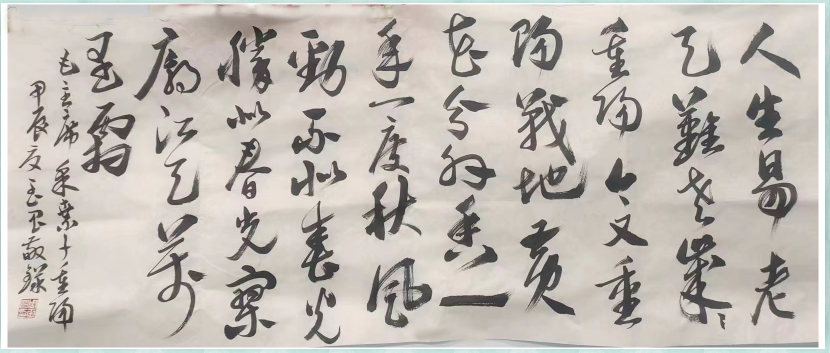 人生易老
天難老歲〻
重陽今又重
陽戰地黄
花分外香一
年一度秋風
勁不似春光
勝似春光寥
廓江天萬
里霜
毛主席采桑子重陽
甲辰夏敬錄